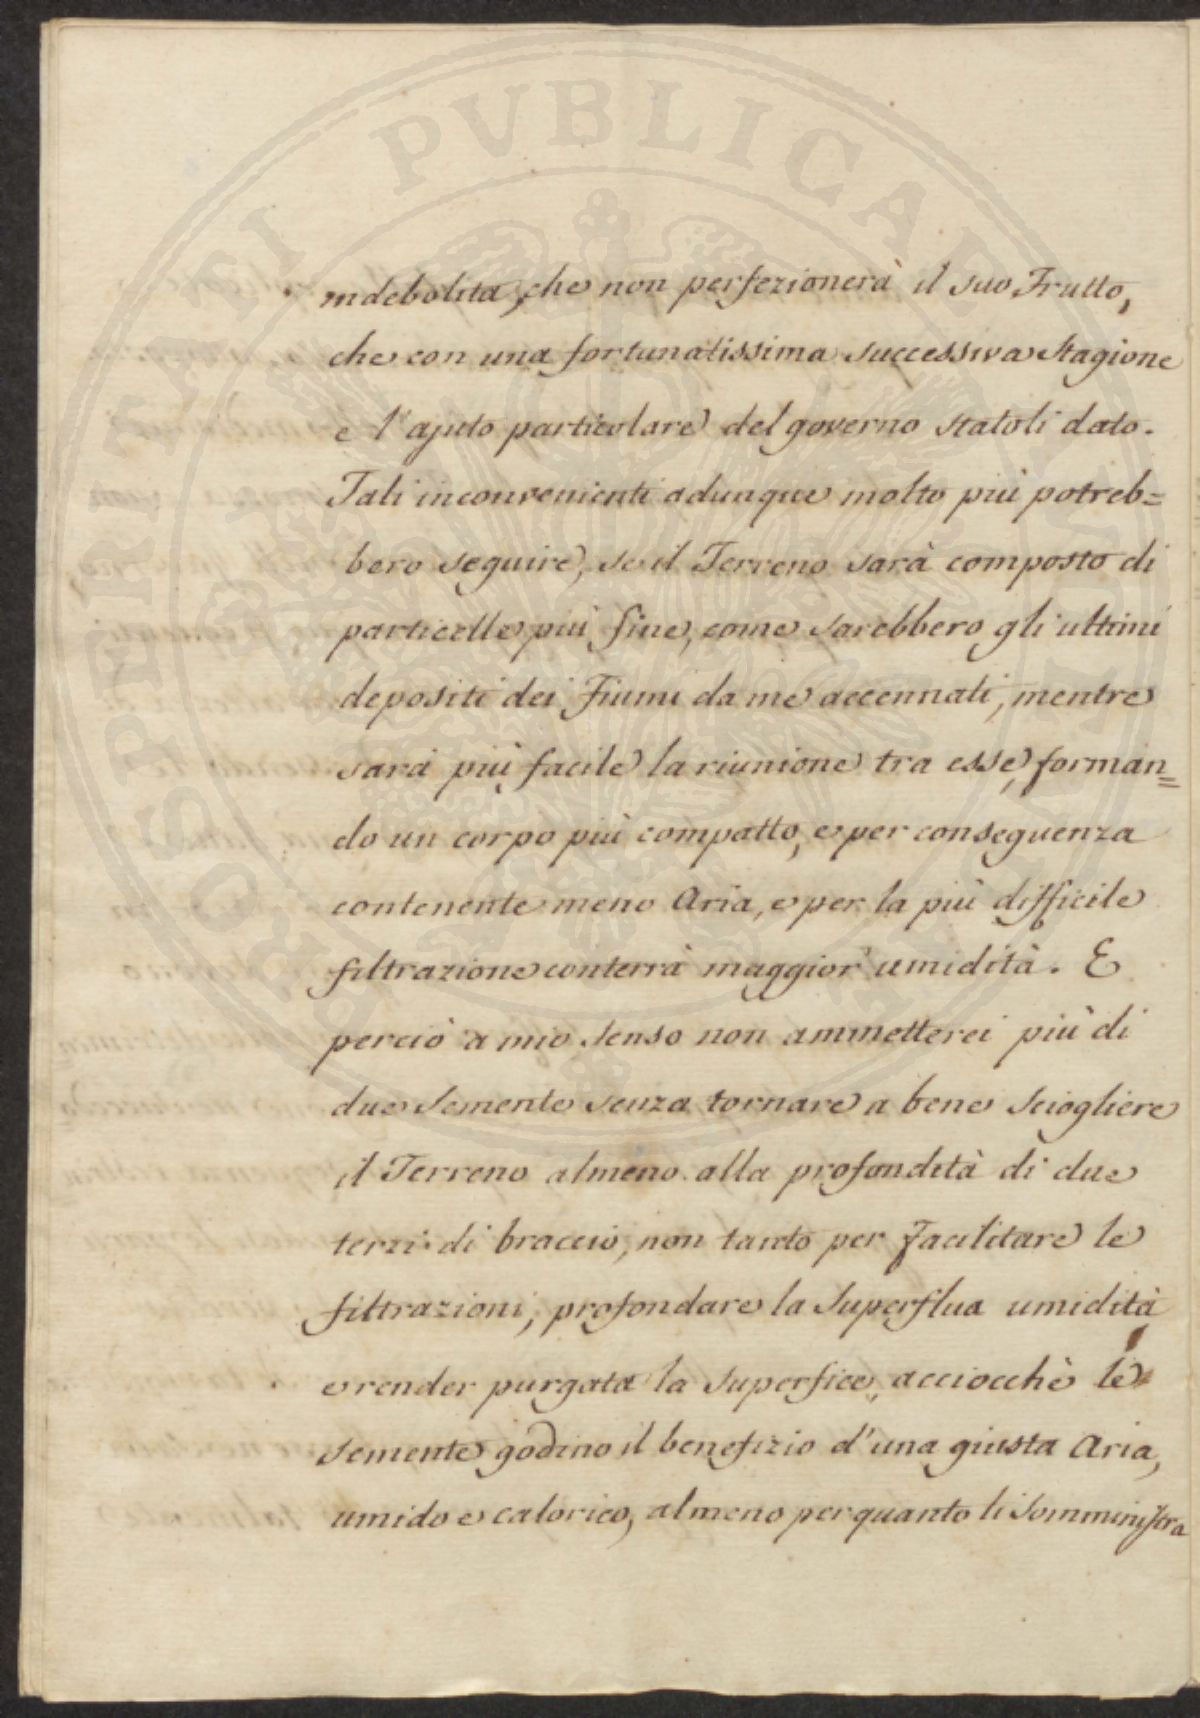 indebolita, che non perfezionerà il suo Frutto,
che con una fortunatissima successiva Stagione
e l'ajuto particolare del governo statoli dato.
Tali inconvenienti adunque molto più potreb=
bero seguire, se il Terreno sarà composto di
particelle più fine, come sarebbero gli ultimi
depositi dei Fiumi da me accennati, mentre
sarà più facile la riunione tra esse, forman=
do un corpo più compatto, e per conseguenza
contenente meno Aria, e per la più difficile
filtrazione conterrà maggior umidità. E
perciò a mio senso non ammetterei più di
due semente senza tornare a bene sciogliere
il Terreno almeno alla profondità di due
terzi di braccio, non tanto per facilitare le
filtrazioni, profondare la superflua umidità
e render purgata la superfice, acciocchè le
semente godino il benefizio d'una giusta Aria,
umido e calorico, almeno per quanto li somministra
PROSPERITATI PUBLICAE